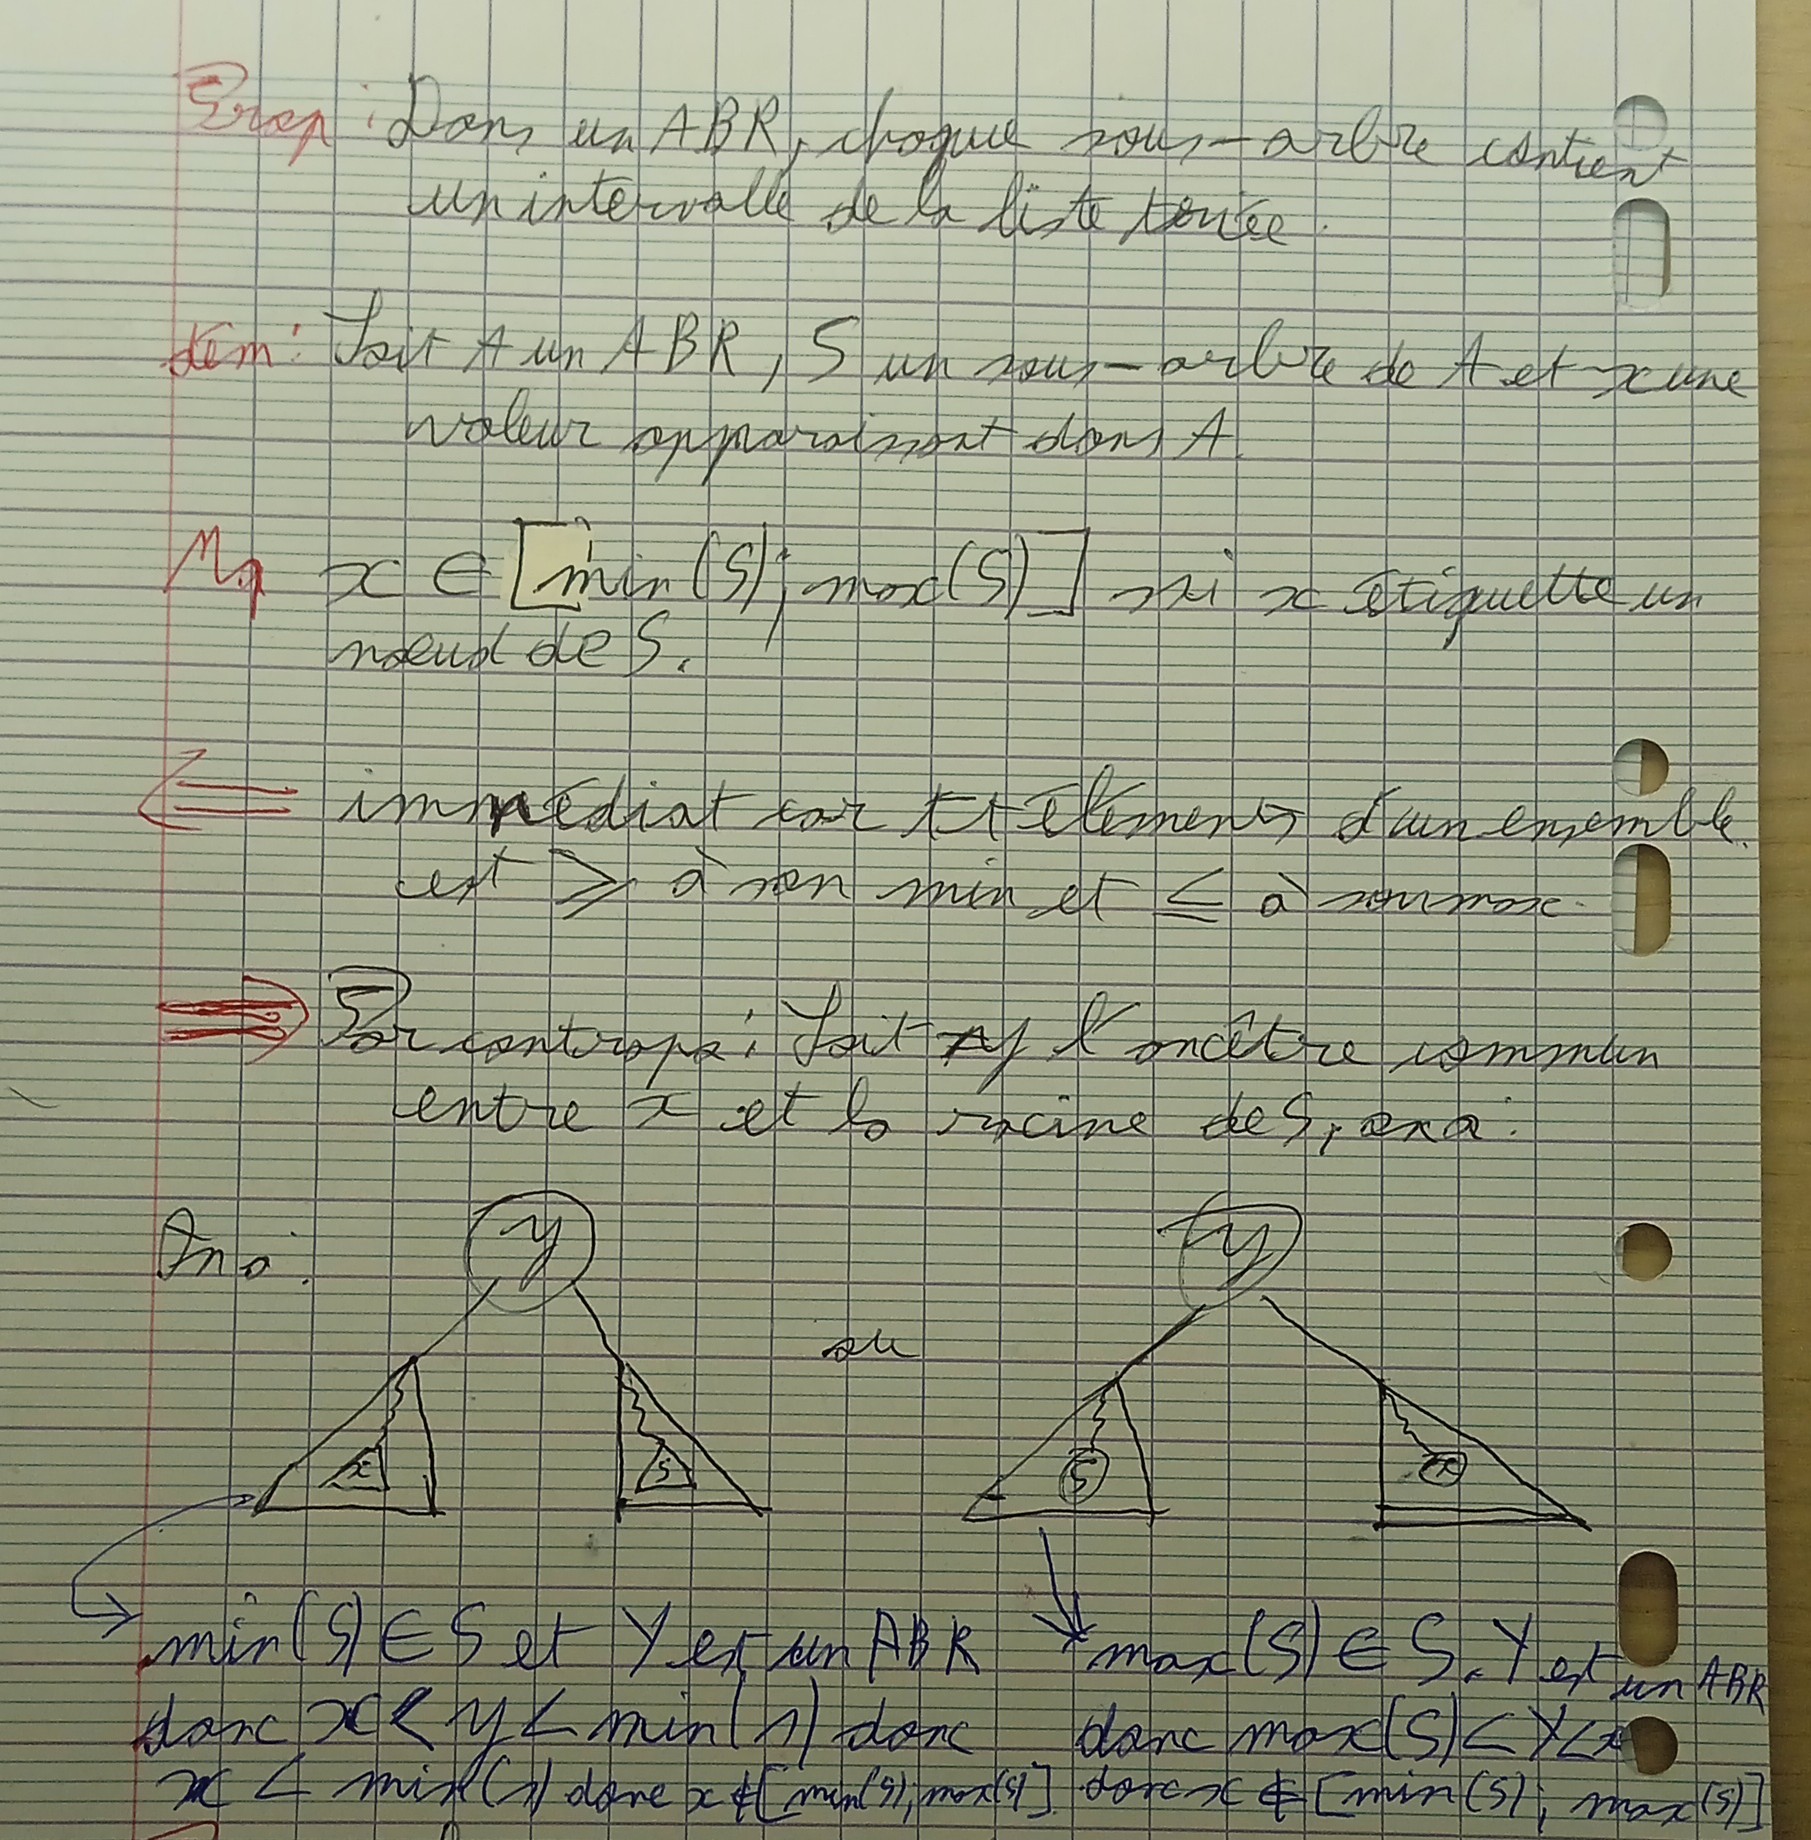 Prop : Dans un ABR, chaque sous-arbre contient
un intervalle de la liste triée.
dém : Soit A un ABR, S un sous-arbre de A et x une
valeur apparaissant dans A.
Mq x ∈ [min(S) ; max(S)] ssi x étiquette un
noeud de S.
⇐ immédiat car tt éléments d'un ensemble
est ⩾ à son min et ≤ à son max.
⇒ Par contrapo : Soit y l'ancêtre commun
entre x et la racine de S, on a :
On a :
y
y
ou
x
S
S
x
min(S) ∈ S et Y est un ABR
donc x < y < min(s) donc
x < min(s) donc x ∉ [min(S) ; max(S)]
max(S) ∈ S. Y est un ABR
donc max(S) < Y < x
donc x ∉ [min(S) ; max(S)]